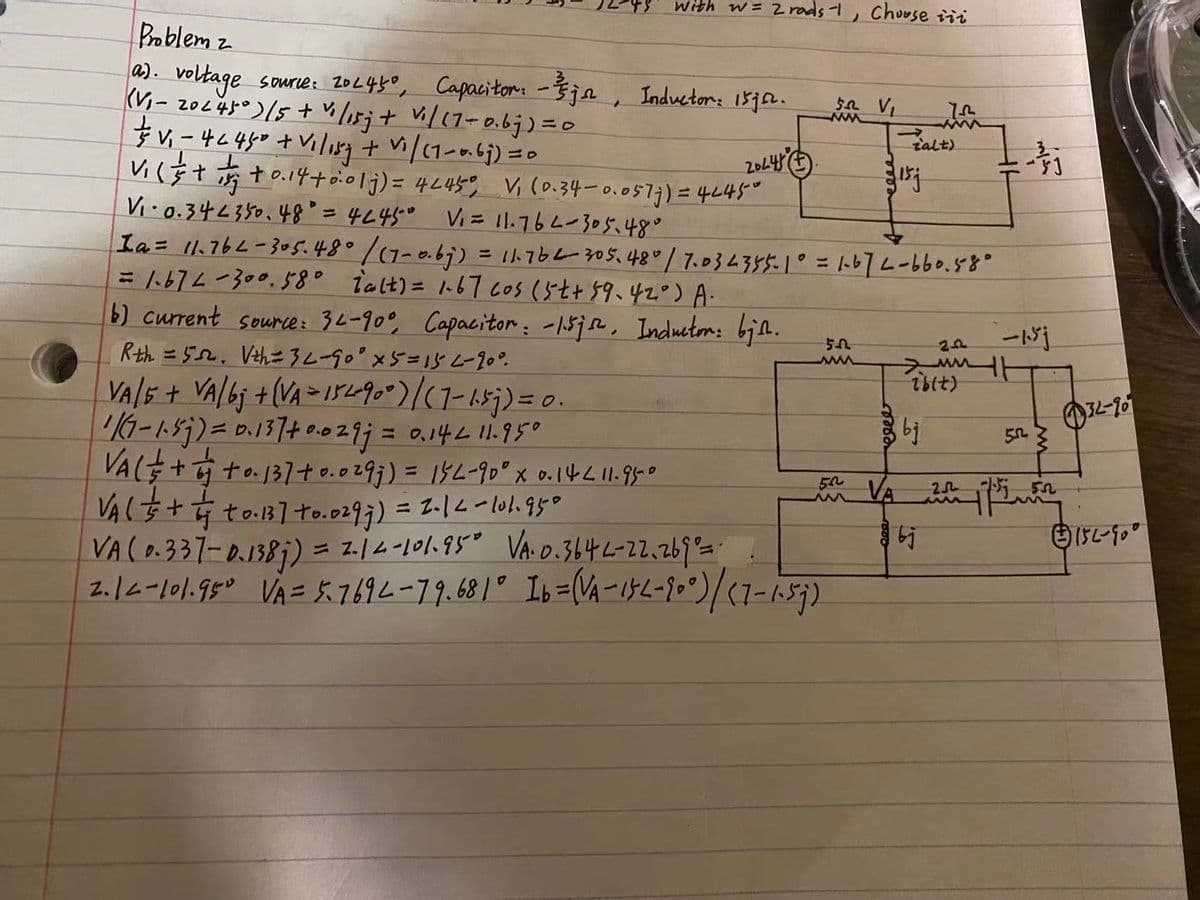 with w = 2 rad s-1, Choose iii
Problem 2
a). voltage source: 20∠45°, Capacitor: -3/5 jΩ, Inductor: 15jΩ.
(V1 - 20∠45°)/5 + V1/15j + V1/(7-0.6j) = 0
1/5 V1 - 4∠45° + V1/15j + V1/(7-0.6j) = 0
V1 (1/5 + 1/15j + 0.14 + 0.01j) = 4∠45°, V1 (0.34 - 0.057j) = 4∠45°
V1 · 0.34∠350.48° = 4∠45° V1 = 11.76∠-305.48°
Ia = 11.76∠-305.48° /(7-0.6j) = 11.76∠-305.48° / 7.03∠355.1° = 1.67∠-660.58°
= 1.67∠-300.58° ia(t) = 1.67 cos (5t + 59.42°) A.
5Ω V1 7Ω
ia(t)
20∠45°
15j
-3/5 j
b) current source: 3∠-90°, Capacitor: -1.5jΩ, Inductor: 6jΩ.
Rth = 5Ω. Vth = 3∠-90° x 5 = 15∠-90°.
VA/5 + VA/6j + (VA - 15∠-90°)/(7-1.5j) = 0.
1/(7-1.5j) = 0.137 + 0.029j = 0.14∠11.95°
VA (1/5 + 1/6j + 0.137 + 0.029j) = 15∠-90° x 0.14∠11.95°
VA (1/5 + 1/6j + 0.137 + 0.029j) = 2.1∠-101.95°
VA (0.337 - 0.138j) = 2.1∠-101.95° VA · 0.364∠-22.269° =
2.1∠-101.95° VA = 5.769∠-79.681° Ib = (VA - 15∠-90°)/(7-1.5j)
5Ω 2Ω -1.5j
ib(t)
6j
5Ω
3∠-90°
5Ω VA 2Ω -1.5j 5Ω
6j
15∠-90°